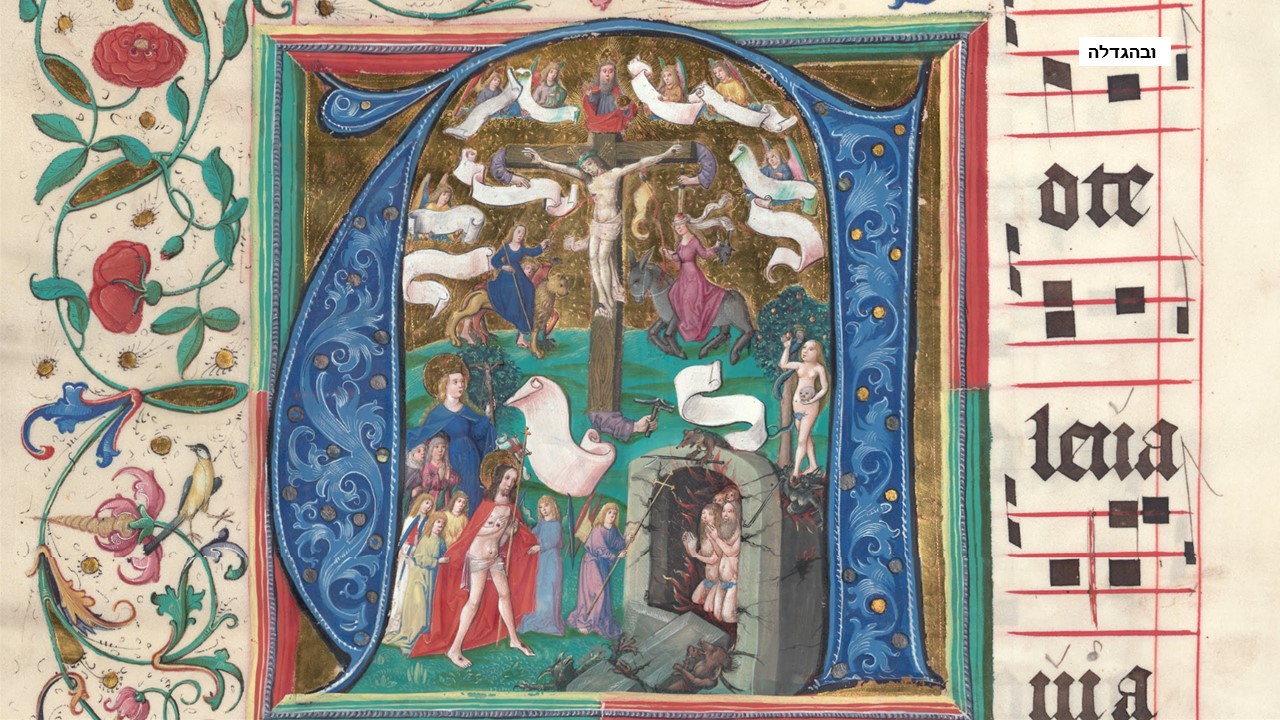 ובהגדלה
ote
leuia
uia